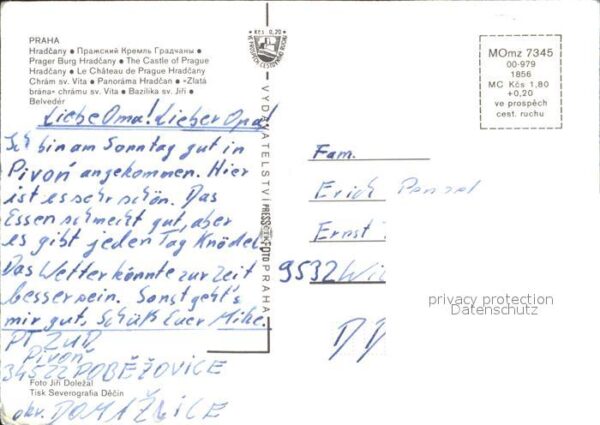 PRAHA
Hradčany ● Пражский Кремль Градчаны ●
Prager Burg Hradčany ● The Castle of Prague
Hradčany ● Le Château de Prague Hradčany
Chrám sv. Víta ● Panoráma Hradčan ● «Zlatá
brána» chrámu sv. Víta ● Bazilika sv. Jiří ●
Belvedér
Liebe Oma! Lieber Opa!
Ich bin am Sonntag gut in
Pivoň angekommen. Hier
ist es sehr schön. Das
Essen schmeckt gut, aber
es gibt jeden Tag Knödel.
Das Wetter könnte zur Zeit
besser sein. Sonst geht's
mir gut. Schüß Euer Mike.
PT ZUD
Pivoň
34522 POBĚŽOVICE
okr. DOMAŽLICE
Foto Jiří Doležal
Tisk Severografia Děčín
Kčs 0,20
VYDAVATELSTVÍ PRESSFOTO PRAHA
MOmz 7345
00-979
1856
MC Kčs 1,80
+0,20
ve prospěch
cest. ruchu
Fam.
Erich
Ernst
9532
DD
privacy protection
Datenschutz